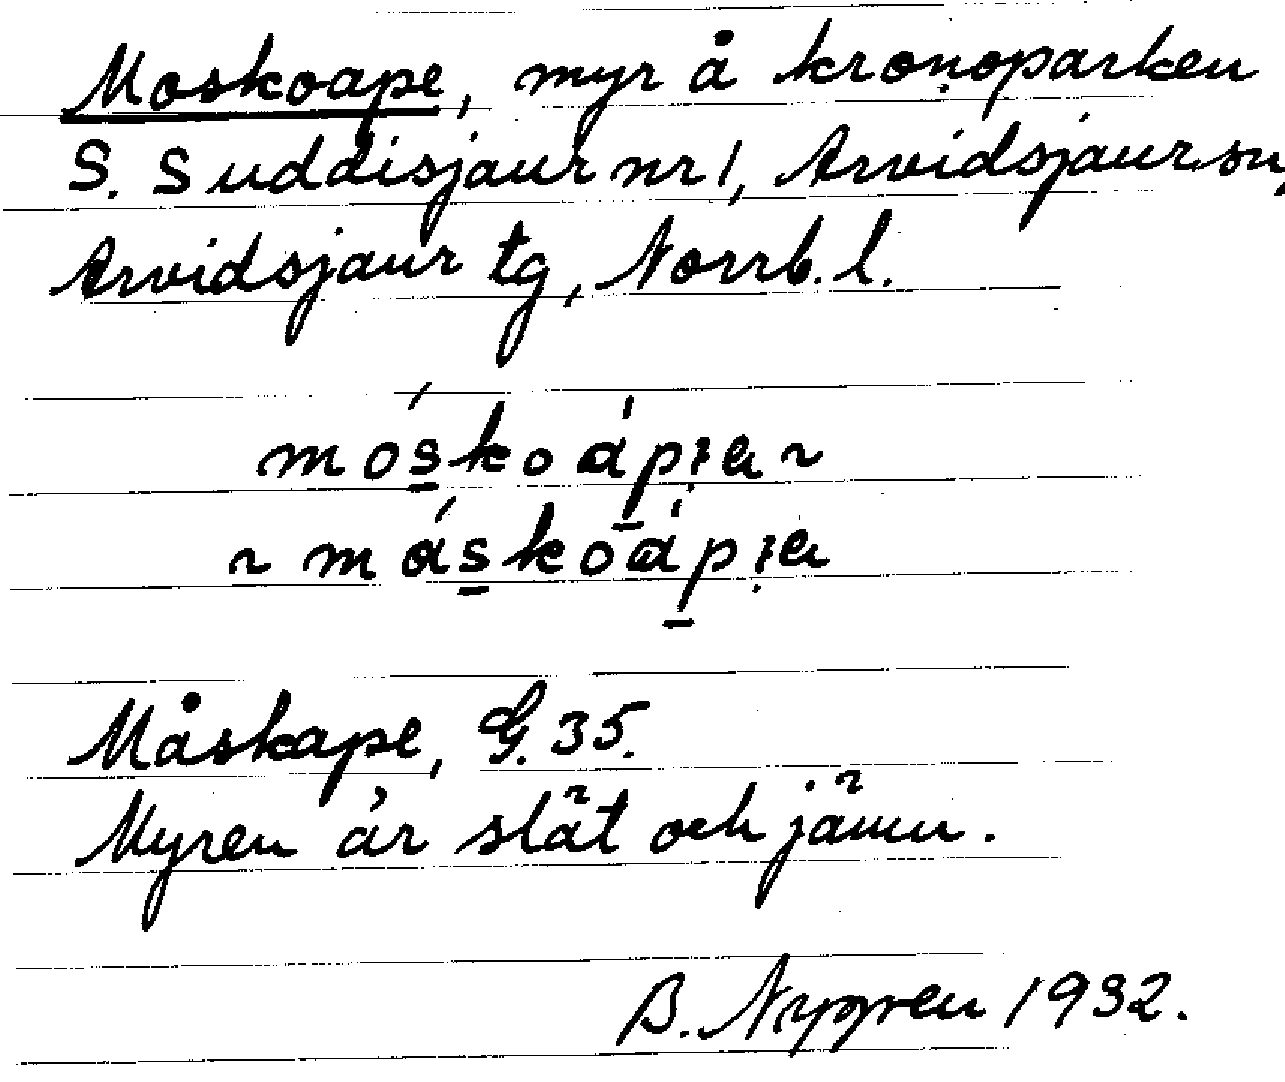 Moskoape, myr å kronoparken
S. Suddisjaur nr 1, Arvidsjaur sn,
Arvidsjaur tg, Norrb. l.
móskoápi̯e ~
~ máskoápi̯e
Måskape, G. 35.
Myren är slät och jämn.
B. Nygren 1932.